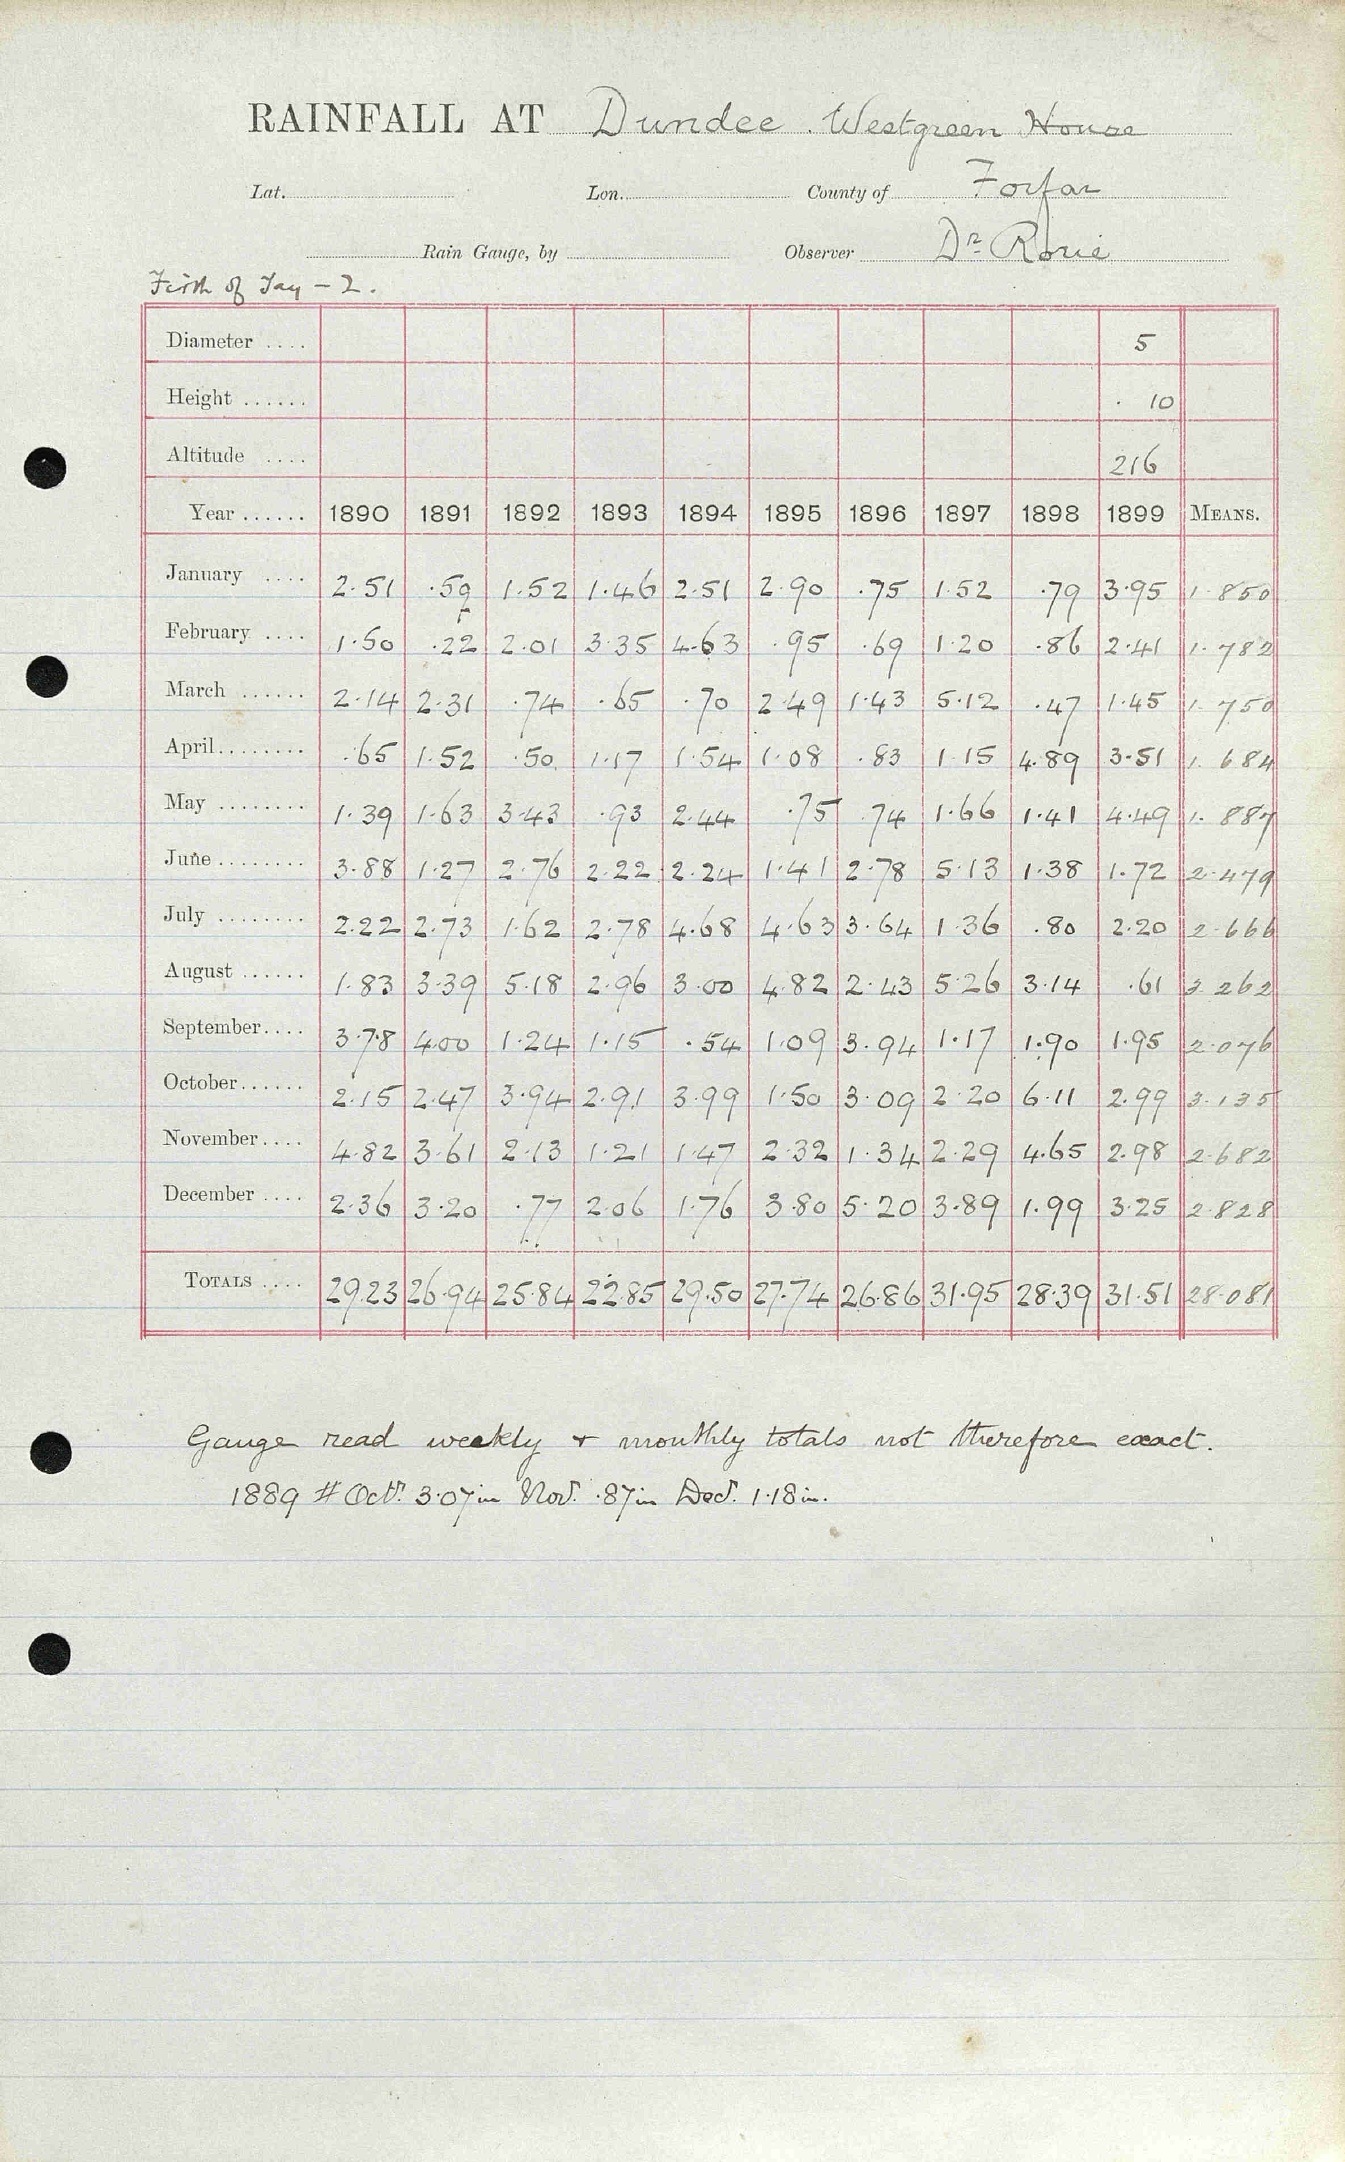 RAINFALL AT Dundee. Westgreen House
Lat. Lon. County of Forfar
Rain Gauge, by Observer Dr Rorie
Firth of Tay – 2.
Diameter .... 5
Height ...... 10
Altitude .... 216
Year ...... 1890 1891 1892 1893 1894 1895 1896 1897 1898 1899 MEANS.
January .... 2.51 .59 1.52 1.46 2.51 2.90 .75 1.52 .79 3.95 1.850
February .... 1.50 .22 2.01 3.35 4.63 .95 .69 1.20 .86 2.41 1.782
March ...... 2.14 2.31 .74 .65 .70 2.49 1.43 5.12 .47 1.45 1.750
April ........ .65 1.52 .50 1.17 1.54 1.08 .83 1.15 4.89 3.51 1.684
May ........ 1.39 1.63 3.43 .93 2.44 .75 .74 1.66 1.41 4.49 1.887
June ........ 3.88 1.27 2.76 2.22 2.24 1.41 2.78 5.13 1.38 1.72 2.479
July ........ 2.22 2.73 1.62 2.78 4.68 4.63 3.64 1.36 .80 2.20 2.666
August ...... 1.83 3.39 5.18 2.96 3.00 4.82 2.43 5.26 3.14 .61 3.262
September .... 3.78 4.00 1.24 1.15 .54 1.09 3.94 1.17 1.90 1.95 2.076
October ...... 2.15 2.47 3.94 2.91 3.99 1.50 3.09 2.20 6.11 2.99 3.135
November .... 4.82 3.61 2.13 1.21 1.47 2.32 1.34 2.29 4.65 2.98 2.682
December .... 2.36 3.20 .77 2.06 1.76 3.80 5.20 3.89 1.99 3.25 2.828
TOTALS .... 29.23 26.94 25.84 22.85 29.50 27.74 26.86 31.95 28.39 31.51 28.081
Gauge read weekly + monthly totals not therefore exact.
1889 # Oct. 3.07 in Nov. .87 in Dec. 1.18 in.